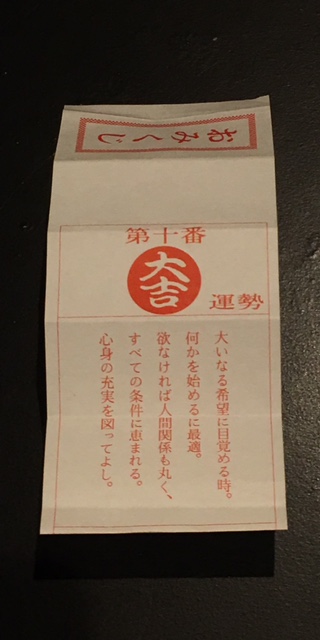 おみくじ
第十番
大吉
運勢
大いなる希望に目覚める時。
何かを始めるに最適。
欲なければ人間関係も丸く、
すべての条件に恵まれる。
心身の充実を図ってよし。